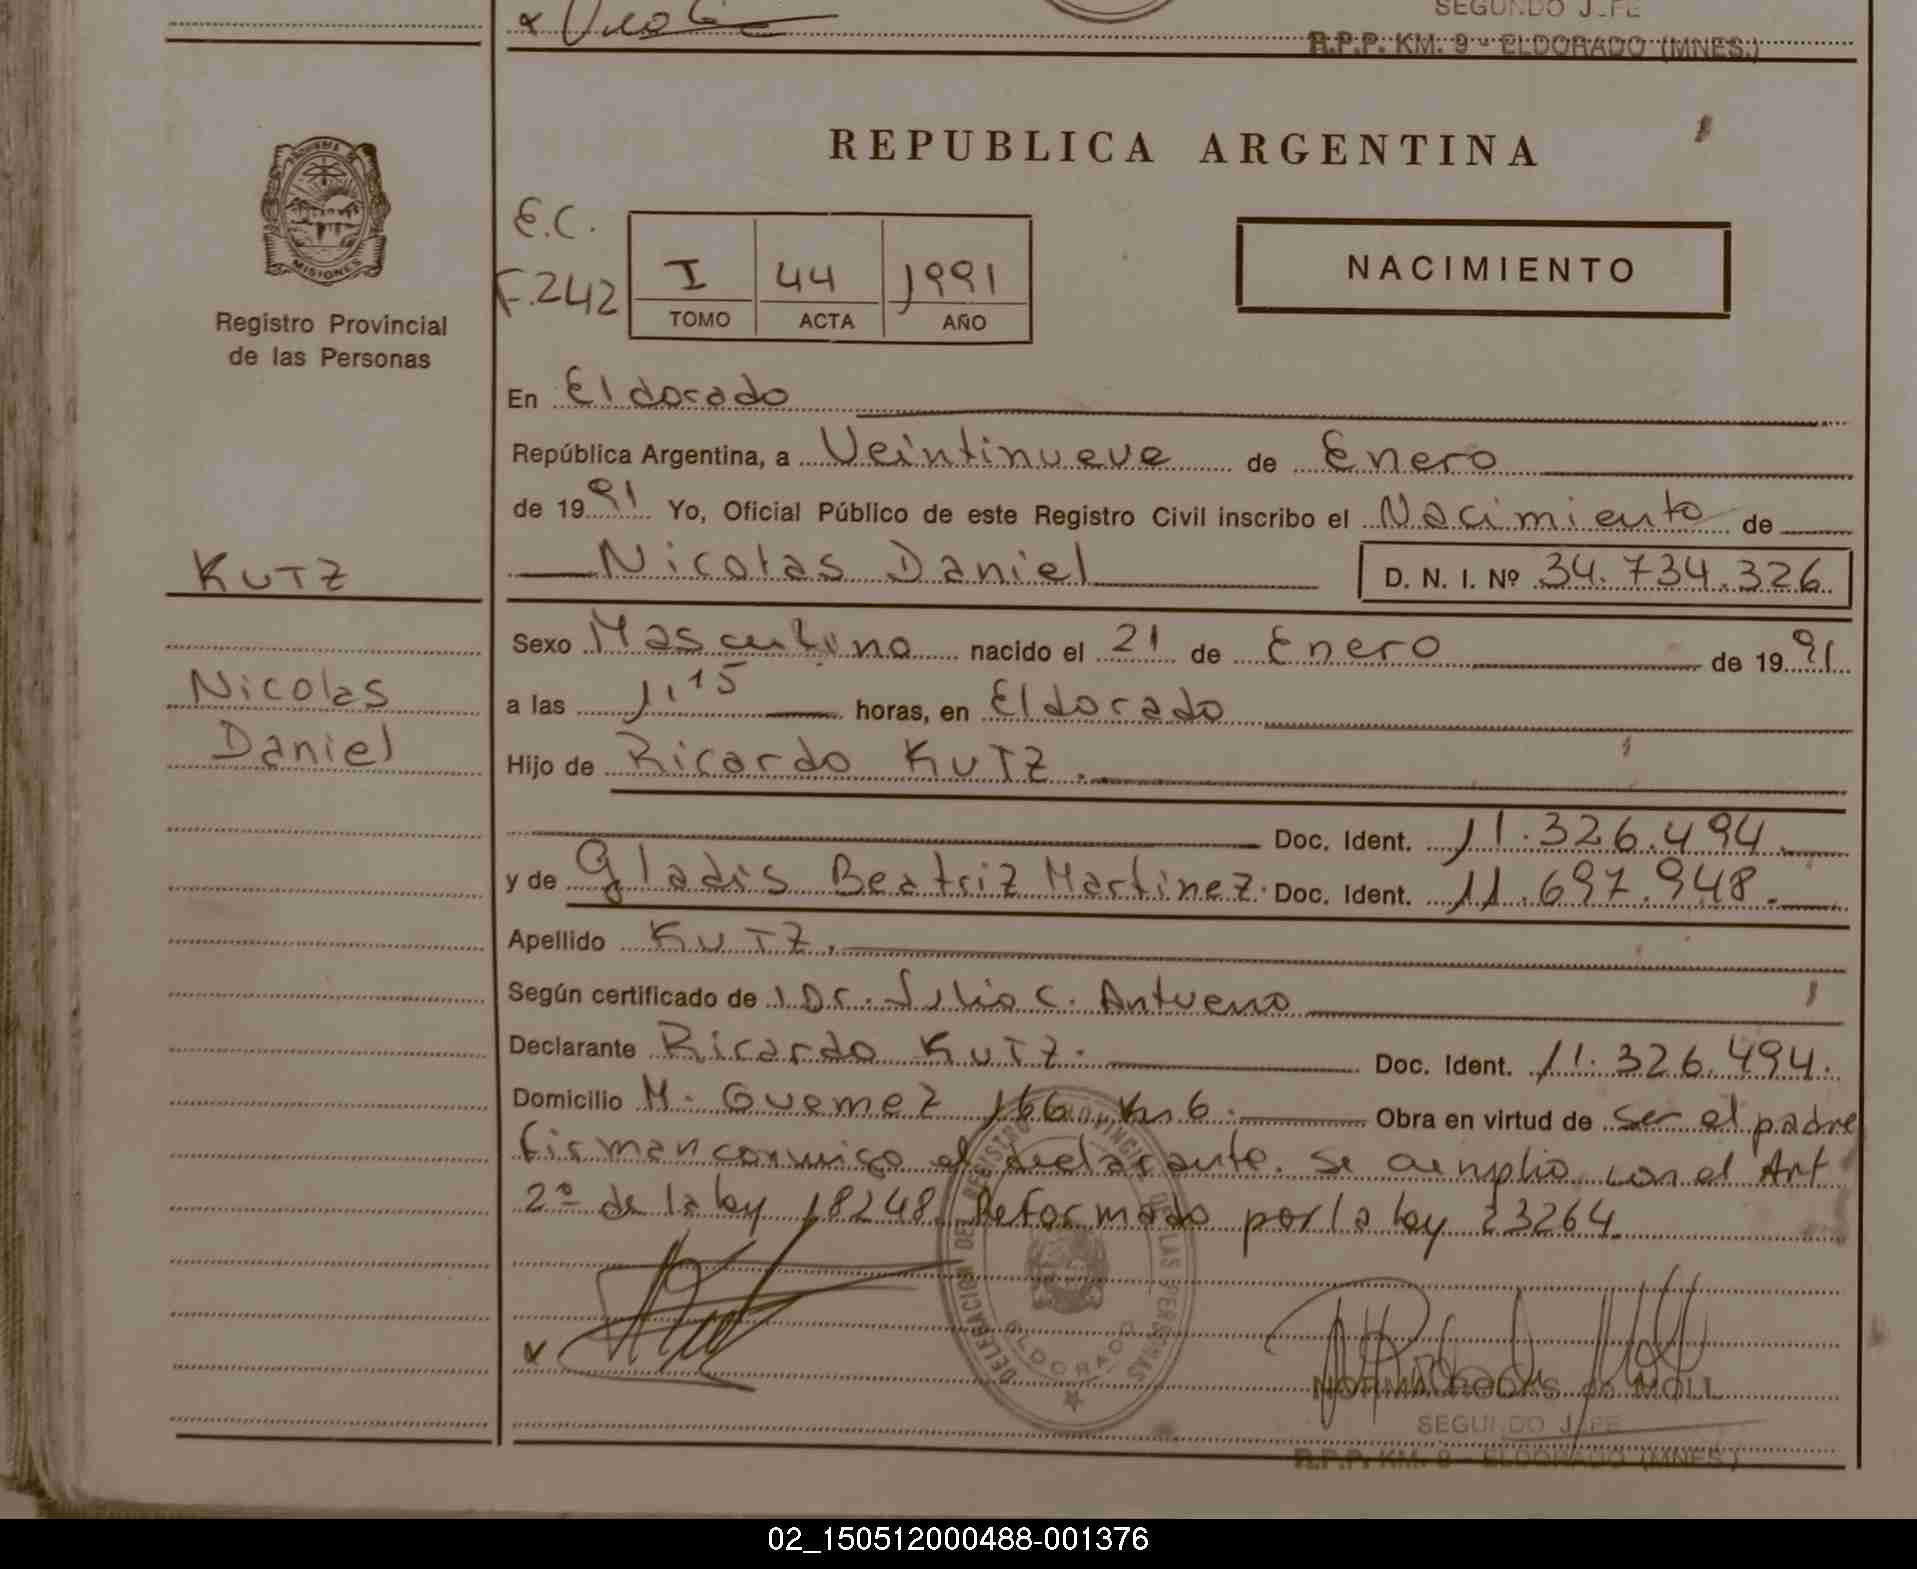 SEGUNDO JEFE
R.P.P. KM. 9 - ELDORADO (MNES.)
REPUBLICA ARGENTINA
PROVINCIA DE
MISIONES
Registro Provincial
de las Personas
E.C.
F.242
I 44 1991
TOMO ACTA AÑO
NACIMIENTO
En Eldorado
República Argentina, a Veintinueve de Enero
de 1991 Yo, Oficial Público de este Registro Civil inscribo el Nacimiento de
KUTZ
Nicolas Daniel D. N. I. Nº 34.734.326.
Sexo Masculino nacido el 21 de Enero de 1991
Nicolas
a las 1,15 horas, en Eldorado
Daniel
Hijo de Ricardo KUTZ.
Doc. Ident. 11.326.494.
y de Gladis Beatriz Martinez. Doc. Ident. 11.697.948.
Apellido KUTZ.
Según certificado de Dr. Julio C.
Declarante Ricardo KUTZ. Doc. Ident. 11.326.494.
Domicilio M. Guemez 166 Km 6. Obra en virtud de ser el padre
firman conmigo el declarante. Se cumplio con el Art
2º de la ley 18248 Reformado por la ley 23264.
DELEGACION DEL REGISTRO PROVINCIAL DE LAS PERSONAS
ELDORADO
NORMA RODAS de MOLL
SEGUNDO JEFE
R.P.P. KM. 9 - ELDORADO (MNES.)
02_150512000488-001376